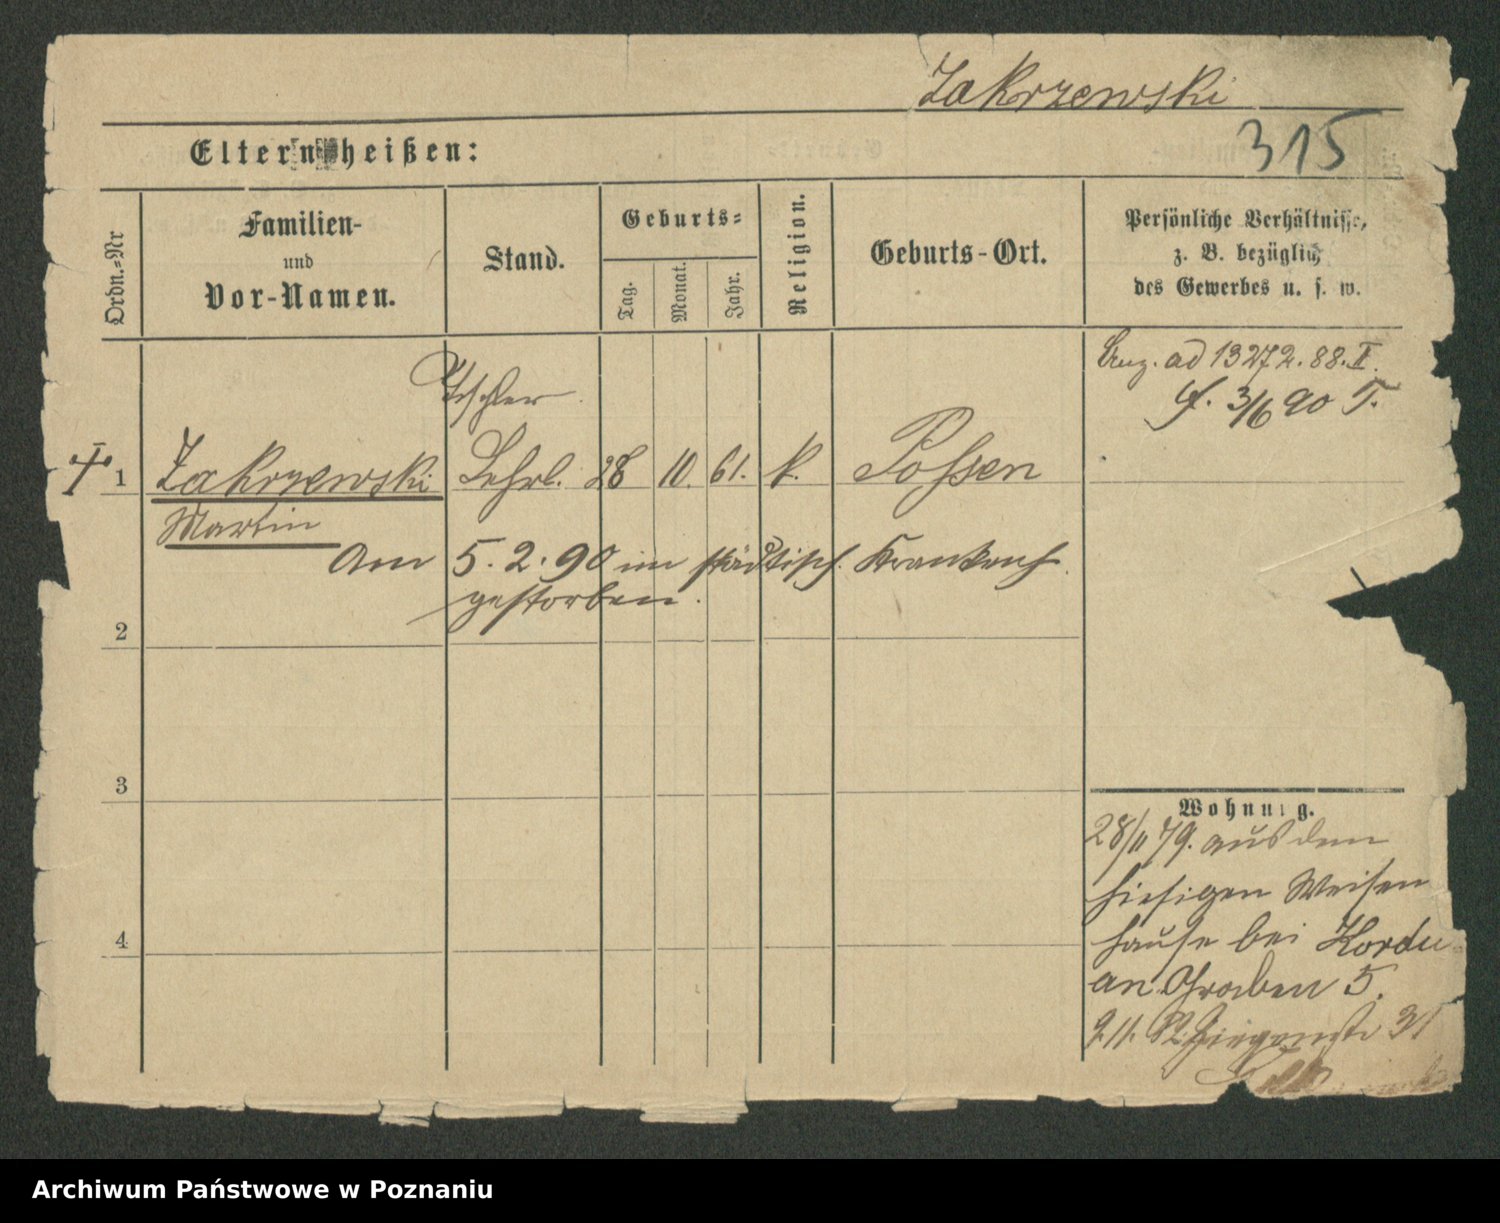 Zakrzewski
315
Eltern heißen:
Ordn.-Nr
Familien-
und
Vor-Namen.
Stand.
Geburts-
Tag.
Monat.
Jahr.
Religion.
Geburts-Ort.
Persönliche Verhältnisse,
z. B. bezüglich
des Gewerbes u. s. w.
ad 13272.88.II.
3/6 90 T.
Tischler
1 Zakrzewski Lehrl. 28 10. 61. k. Possen
Martin
Am 5.2.90 im städtisch. Krankenh.
gestorben.
2
3
4
Wohnung.
28/11 79. aus dem
hiesigen Weisen
hause bei Kordu
an Graben 5.
9.11. 31
Archiwum Państwowe w Poznaniu